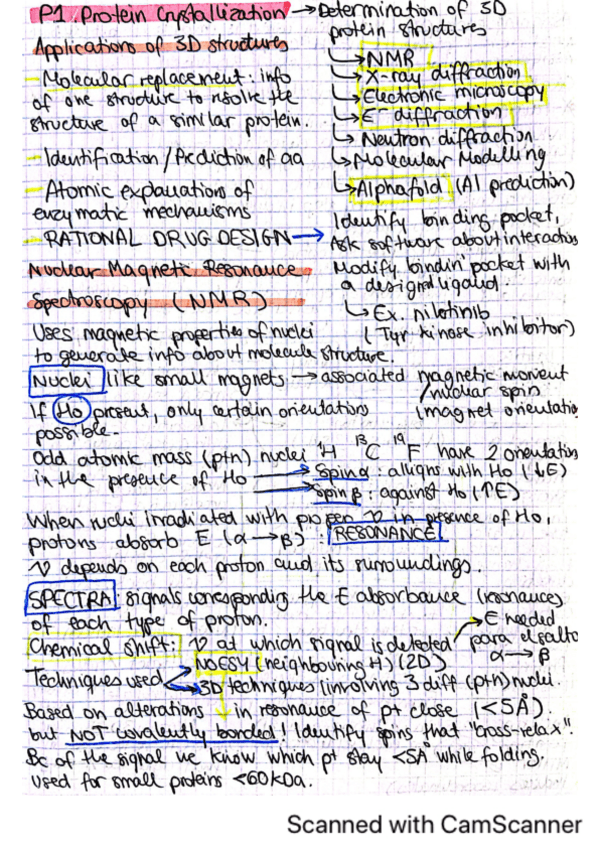 P1. Protein Crystallization → Determination of 3D
protein structures
Applications of 3D structures
- Molecular replacement: info
of one structure to resolve the
structure of a similar protein.
- Identification / Prediction of aa
- Atomic explanation of
enzymatic mechanisms
- RATIONAL DRUG DESIGN →
↳ NMR
↳ X-ray diffraction
↳ Electronic microscopy
↳ E⁻ diffraction
↳ Neutron diffraction
↳ Molecular Modelling
↳ Alphafold (AI prediction)
Identify binding pocket,
Ask software about interactions
Modify bindin' pocket with
a designed ligand.
↳ Ex. nilotinib
(Tyr kinase inhibitor)
Nuclear Magnetic Resonance
Spectroscopy (NMR)
Uses magnetic properties of nuclei
to generate info about molecule structure.
Nuclei like small magnets → associated magnetic moment
/nuclear spin
(magnet orientatio
If Ho present, only certain orientations
possible.
Odd atomic mass (p+n) nuclei ¹H ¹³C ¹⁹F have 2 orientation
in the presence of Ho → Spin α: alligns with Ho (↓E)
→ Spin β: against Ho (↑E)
When nuclei irradiated with proper ν in presence of Ho,
protons absorb E (α → β): RESONANCE
ν depends on each proton and its surroundings.
SPECTRA: signals corresponding the E absorbance (resonances)
of each type of proton.
Chemical shift: ν at which signal is detected → E needed
para el salto
α → β
Techniques used → NOESY (neighbouring H) (2D)
→ 3D techniques (involving 3 diff (p+n) nuclei.
Based on alterations in resonance of pt close (<5Å).
but NOT covalently bonded! Identify spins that "cross-relax".
Bc of the signal we know which pt stay <5Å while folding.
Used for small proteins <60kDa.
Scanned with CamScanner